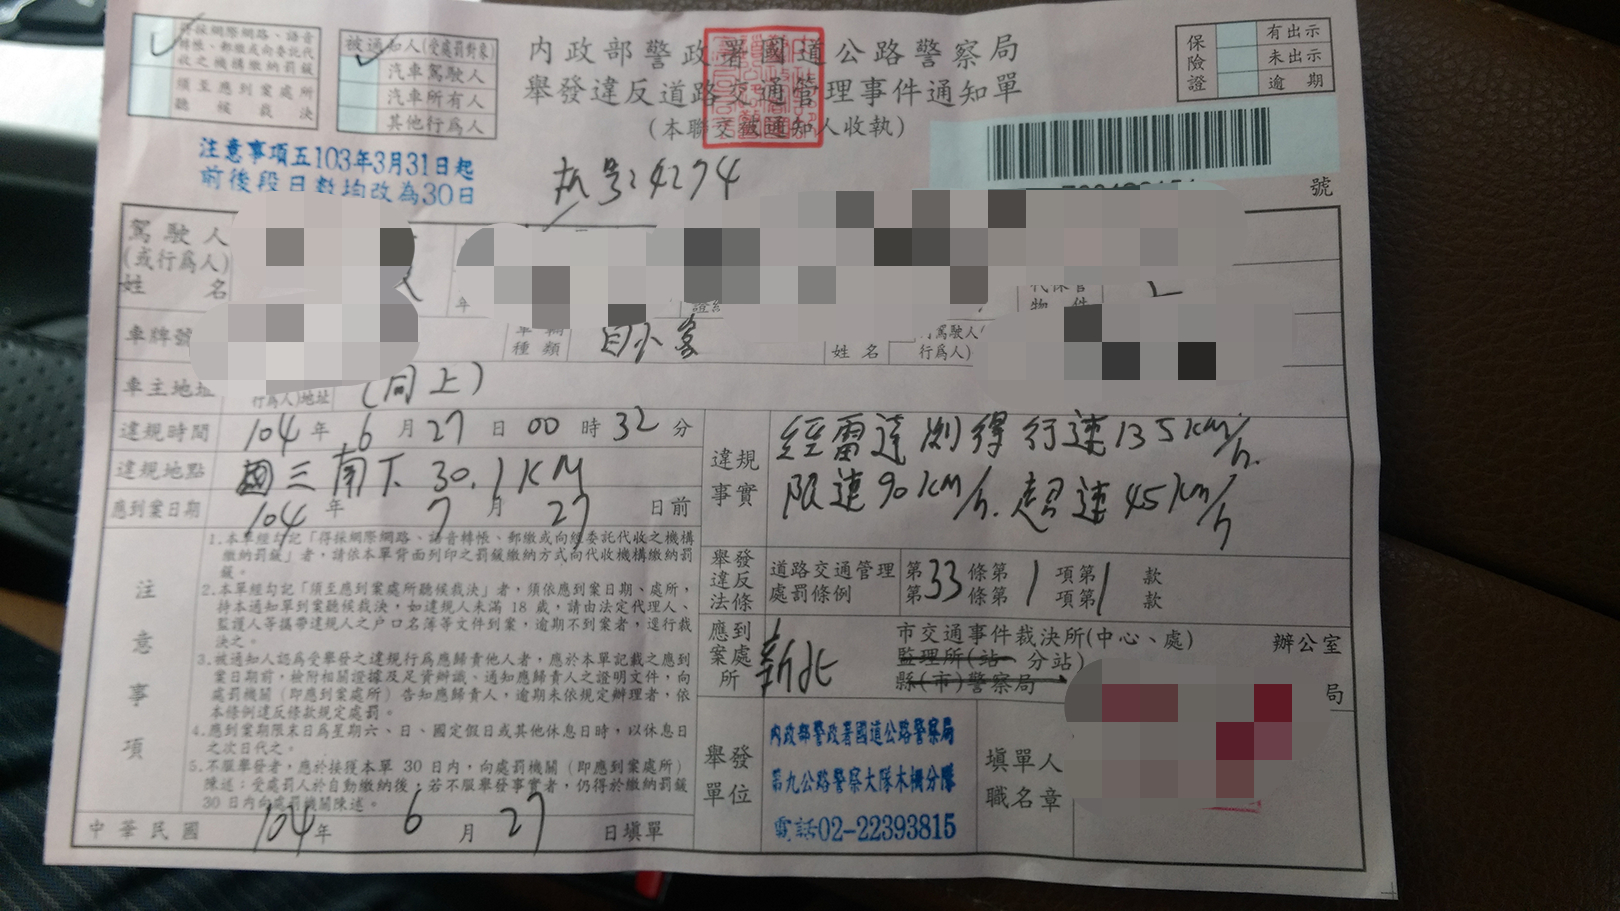 得採網際網路、語音
轉帳、郵繳或向委託代
收之機構繳納罰鍰
須至應到案處所
聽候裁決
被通知人(受處罰對象)
汽車駕駛人
汽車所有人
其他行為人
內政部警政署國道公路警察局
舉發違反道路交通管理事件通知單
(本聯交被通知人收執)
保險證
有出示
未出示
逾期
注意事項五103年3月31日起
前後段日數均改為30日
號
駕駛人
(或行為人)
姓名
年
代保管
物件
車牌號
車輛
種類
自小客
姓名
駕駛人
行為人)
車主地址
行為人)地址
(同上)
違規時間
104年6月27日00時32分
違規地點
國三南下30.1KM
應到案日期
104年7月27日前
違規事實
經雷達測得行速135km/h.
限速90km/h.超速45km/h
注意事項
1.本單經勾記「得採網際網路、語音轉帳、郵繳或向經委託代收之機構
繳納罰鍰」者,請依本單背面列印之罰鍰繳納方式向代收機構繳納罰
鍰。
2.本單經勾記「須至應到案處所聽候裁決」者,須依應到案日期、處所,
持本通知單到案聽候裁決,如違規人未滿18歲,請由法定代理人、
監護人等攜帶違規人之戶口名簿等文件到案,逾期不到案者,逕行裁
決之。
3.被通知人認為受舉發之違規行為應歸責他人者,應於本單記載之應到
案日期前,檢附相關證據及足資辨識、通知應歸責人之證明文件,向
處罰機關(即應到案處所)告知應歸責人,逾期未依規定辦理者,依
本條例違反條款規定處罰。
4.應到案期限末日為星期六、日、國定假日或其他休息日時,以休息日
之次日代之。
5.不服舉發者,應於接獲本單30日內,向處罰機關(即應到案處所)
陳述;受處罰人於自動繳納後,若不服舉發事實者,仍得於繳納罰鍰
30日內向處罰機關陳述。
舉發違反法條
道路交通管理
處罰條例
第33條第1項第1款
第 條第 項第 款
應到案處所
新北
市交通事件裁決所(中心、處)
監理所(站 分站)
縣(市)警察局
辦公室
局
舉發單位
內政部警政署國道公路警察局
第九公路警察大隊木柵分隊
電話02-22393815
填單人
職名章
中華民國104年6月27日填單